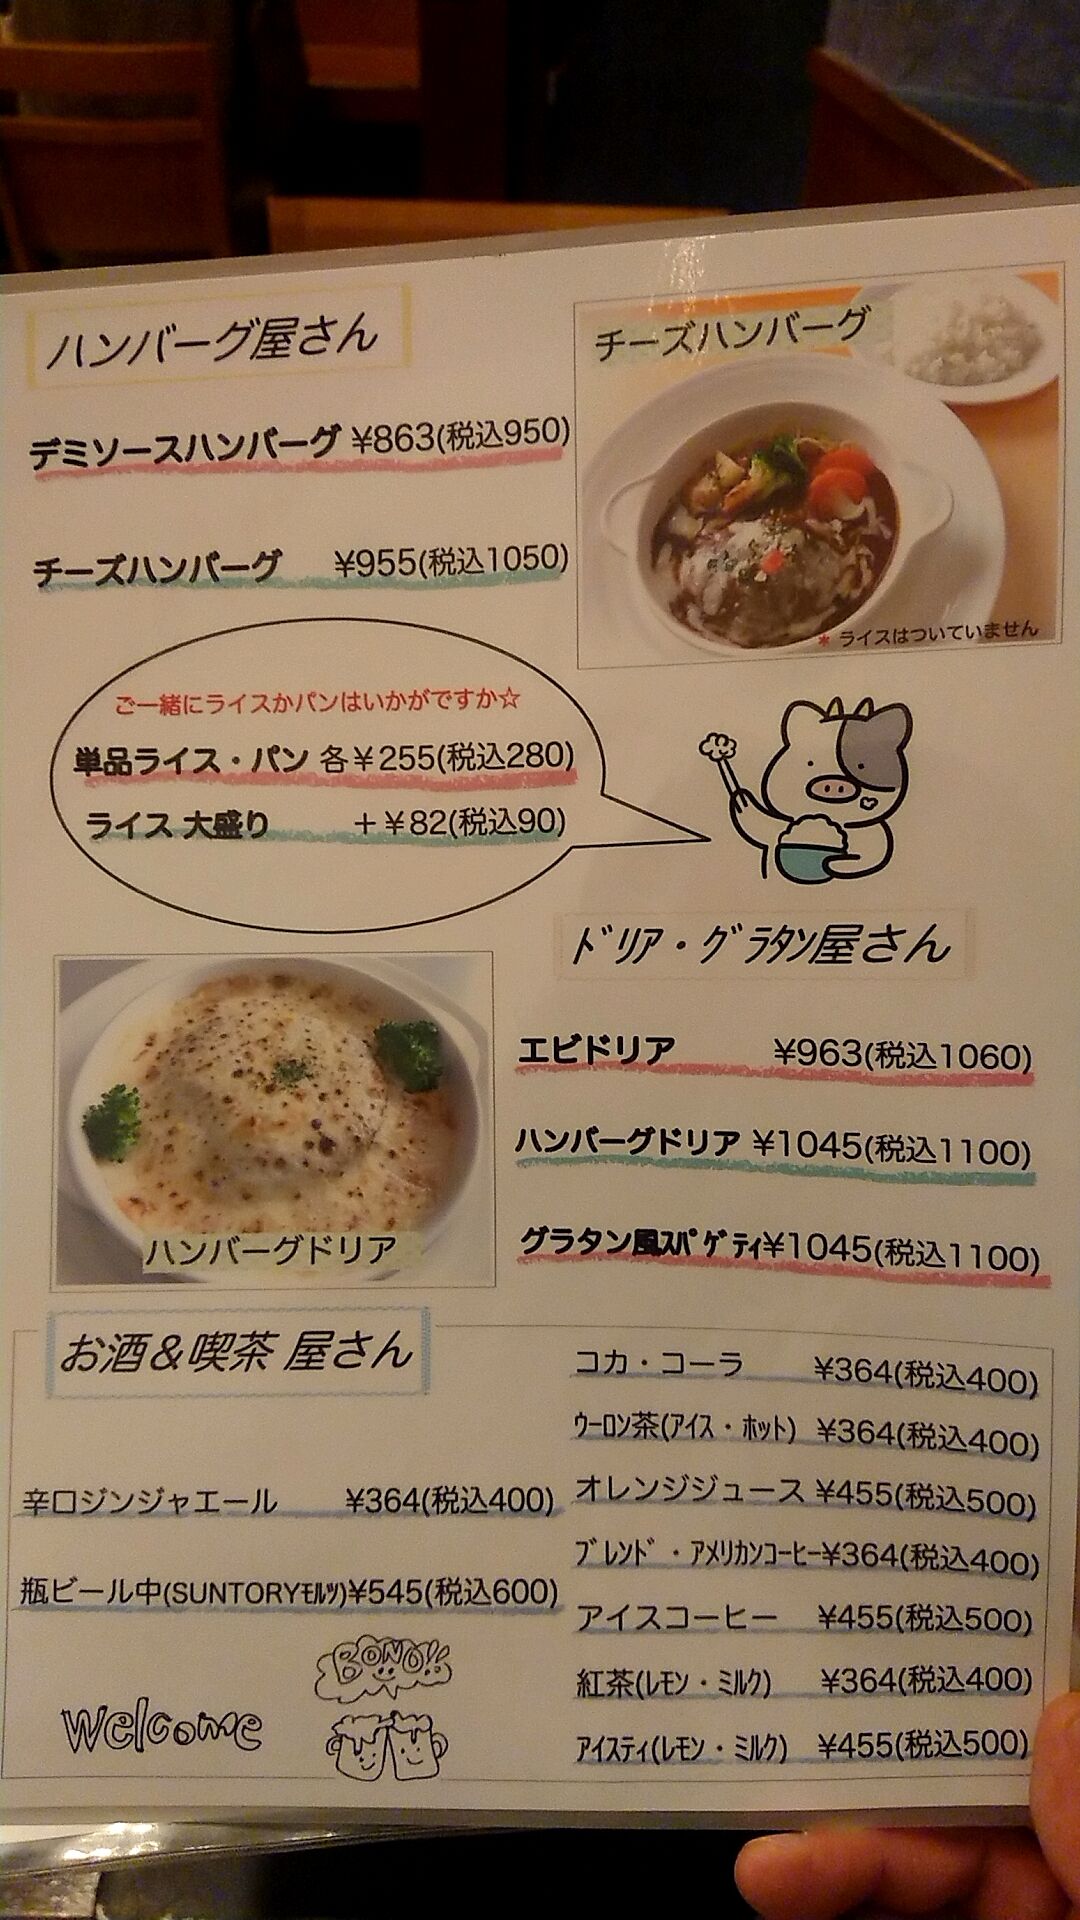 ハンバーグ屋さん
デミソースハンバーグ ¥863(税込950)
チーズハンバーグ ¥955(税込1050)
チーズハンバーグ
* ライスはついていません
ご一緒にライスかパンはいかがですか☆
単品ライス・パン 各¥255(税込280)
ライス 大盛り +¥82(税込90)
ドリア・グラタン屋さん
エビドリア ¥963(税込1060)
ハンバーグドリア ¥1045(税込1100)
グラタン風スパゲティ¥1045(税込1100)
ハンバーグドリア
お酒&喫茶 屋さん
辛口ジンジャエール ¥364(税込400)
瓶ビール中(SUNTORYモルツ)¥545(税込600)
コカ・コーラ ¥364(税込400)
ウーロン茶(アイス・ホット) ¥364(税込400)
オレンジジュース ¥455(税込500)
ブレンド・アメリカンコーヒー¥364(税込400)
アイスコーヒー ¥455(税込500)
紅茶(レモン・ミルク) ¥364(税込400)
アイスティ(レモン・ミルク) ¥455(税込500)
BONO!!
Welcome